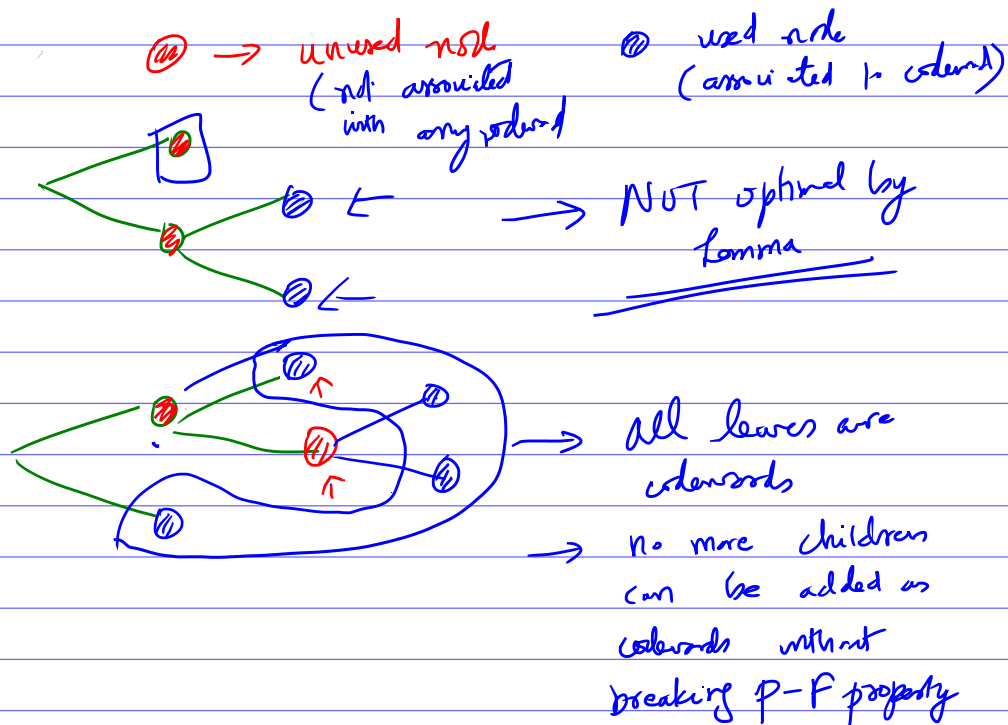 → unused node
(not associated
with any codeword
used node
(associated to codeword)
→ NOT optimal by
Lemma
→ all leaves are
codewords
→ no more children
can be added as
codewords without
breaking P-F property